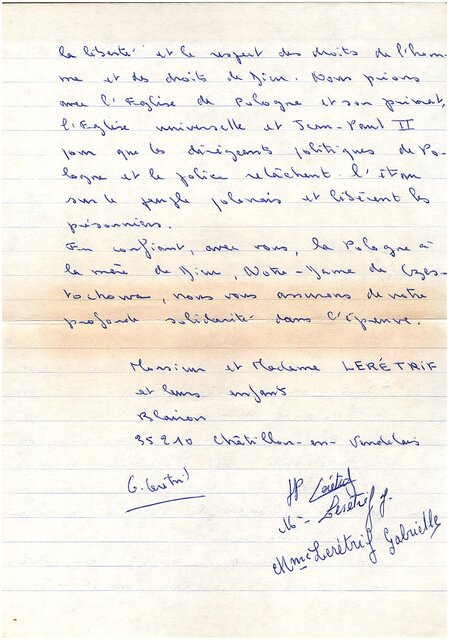 la liberté et le respect des droits de l'hom-
me et des droits de Dieu. Nous prions
avec l'Eglise de Pologne et son primat,
l'Eglise universelle et Jean-Paul II
pour que les dirigeants politiques de Po-
logne et la police relâchent l'étau
sur le peuple polonais et libèrent les
prisonniers.
En confiant, avec vous, la Pologne à
la mère de Dieu, Notre-Dame de Czes-
tochowa, nous vous assurons de notre
profonde solidarité dans l'épreuve.
Monsieur et Madame LERÉTRIF
et leurs enfants
35210 Châtillon-en-Vendelais
G. Lerétrif
JP Lerétrif
Lerétrif J.
Mme Lerétrif Gabrielle